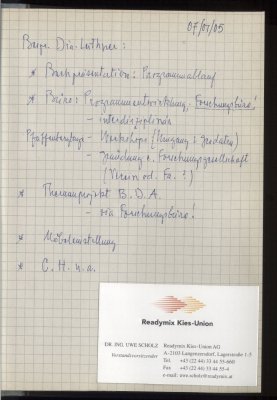 07/01/05
* Buchpräsentation: Programmablauf
* Büro: Programmentwicklung. Forschungsbüro!
- interdisziplinär
- Workshops (Umgang &
- Gründung e. Forschungsgesellschaft
(Verein od. Fa. ?)
* Themenprojekt B.D.A.
- via Forschungsbüro!
* 
* C.H. u.a.
Readymix Kies-Union
DR. ING. UWE SCHOLZ
Vorstandsvorsitzender
Readymix Kies-Union AG
A-2103 Langenzersdorf, Lagerstraße 1-5
Tel. +43 (22 44) 33 44 55-660
Fax +43 (22 44) 33 44 55-4
e-mail: uwe.scholz@readymix.at